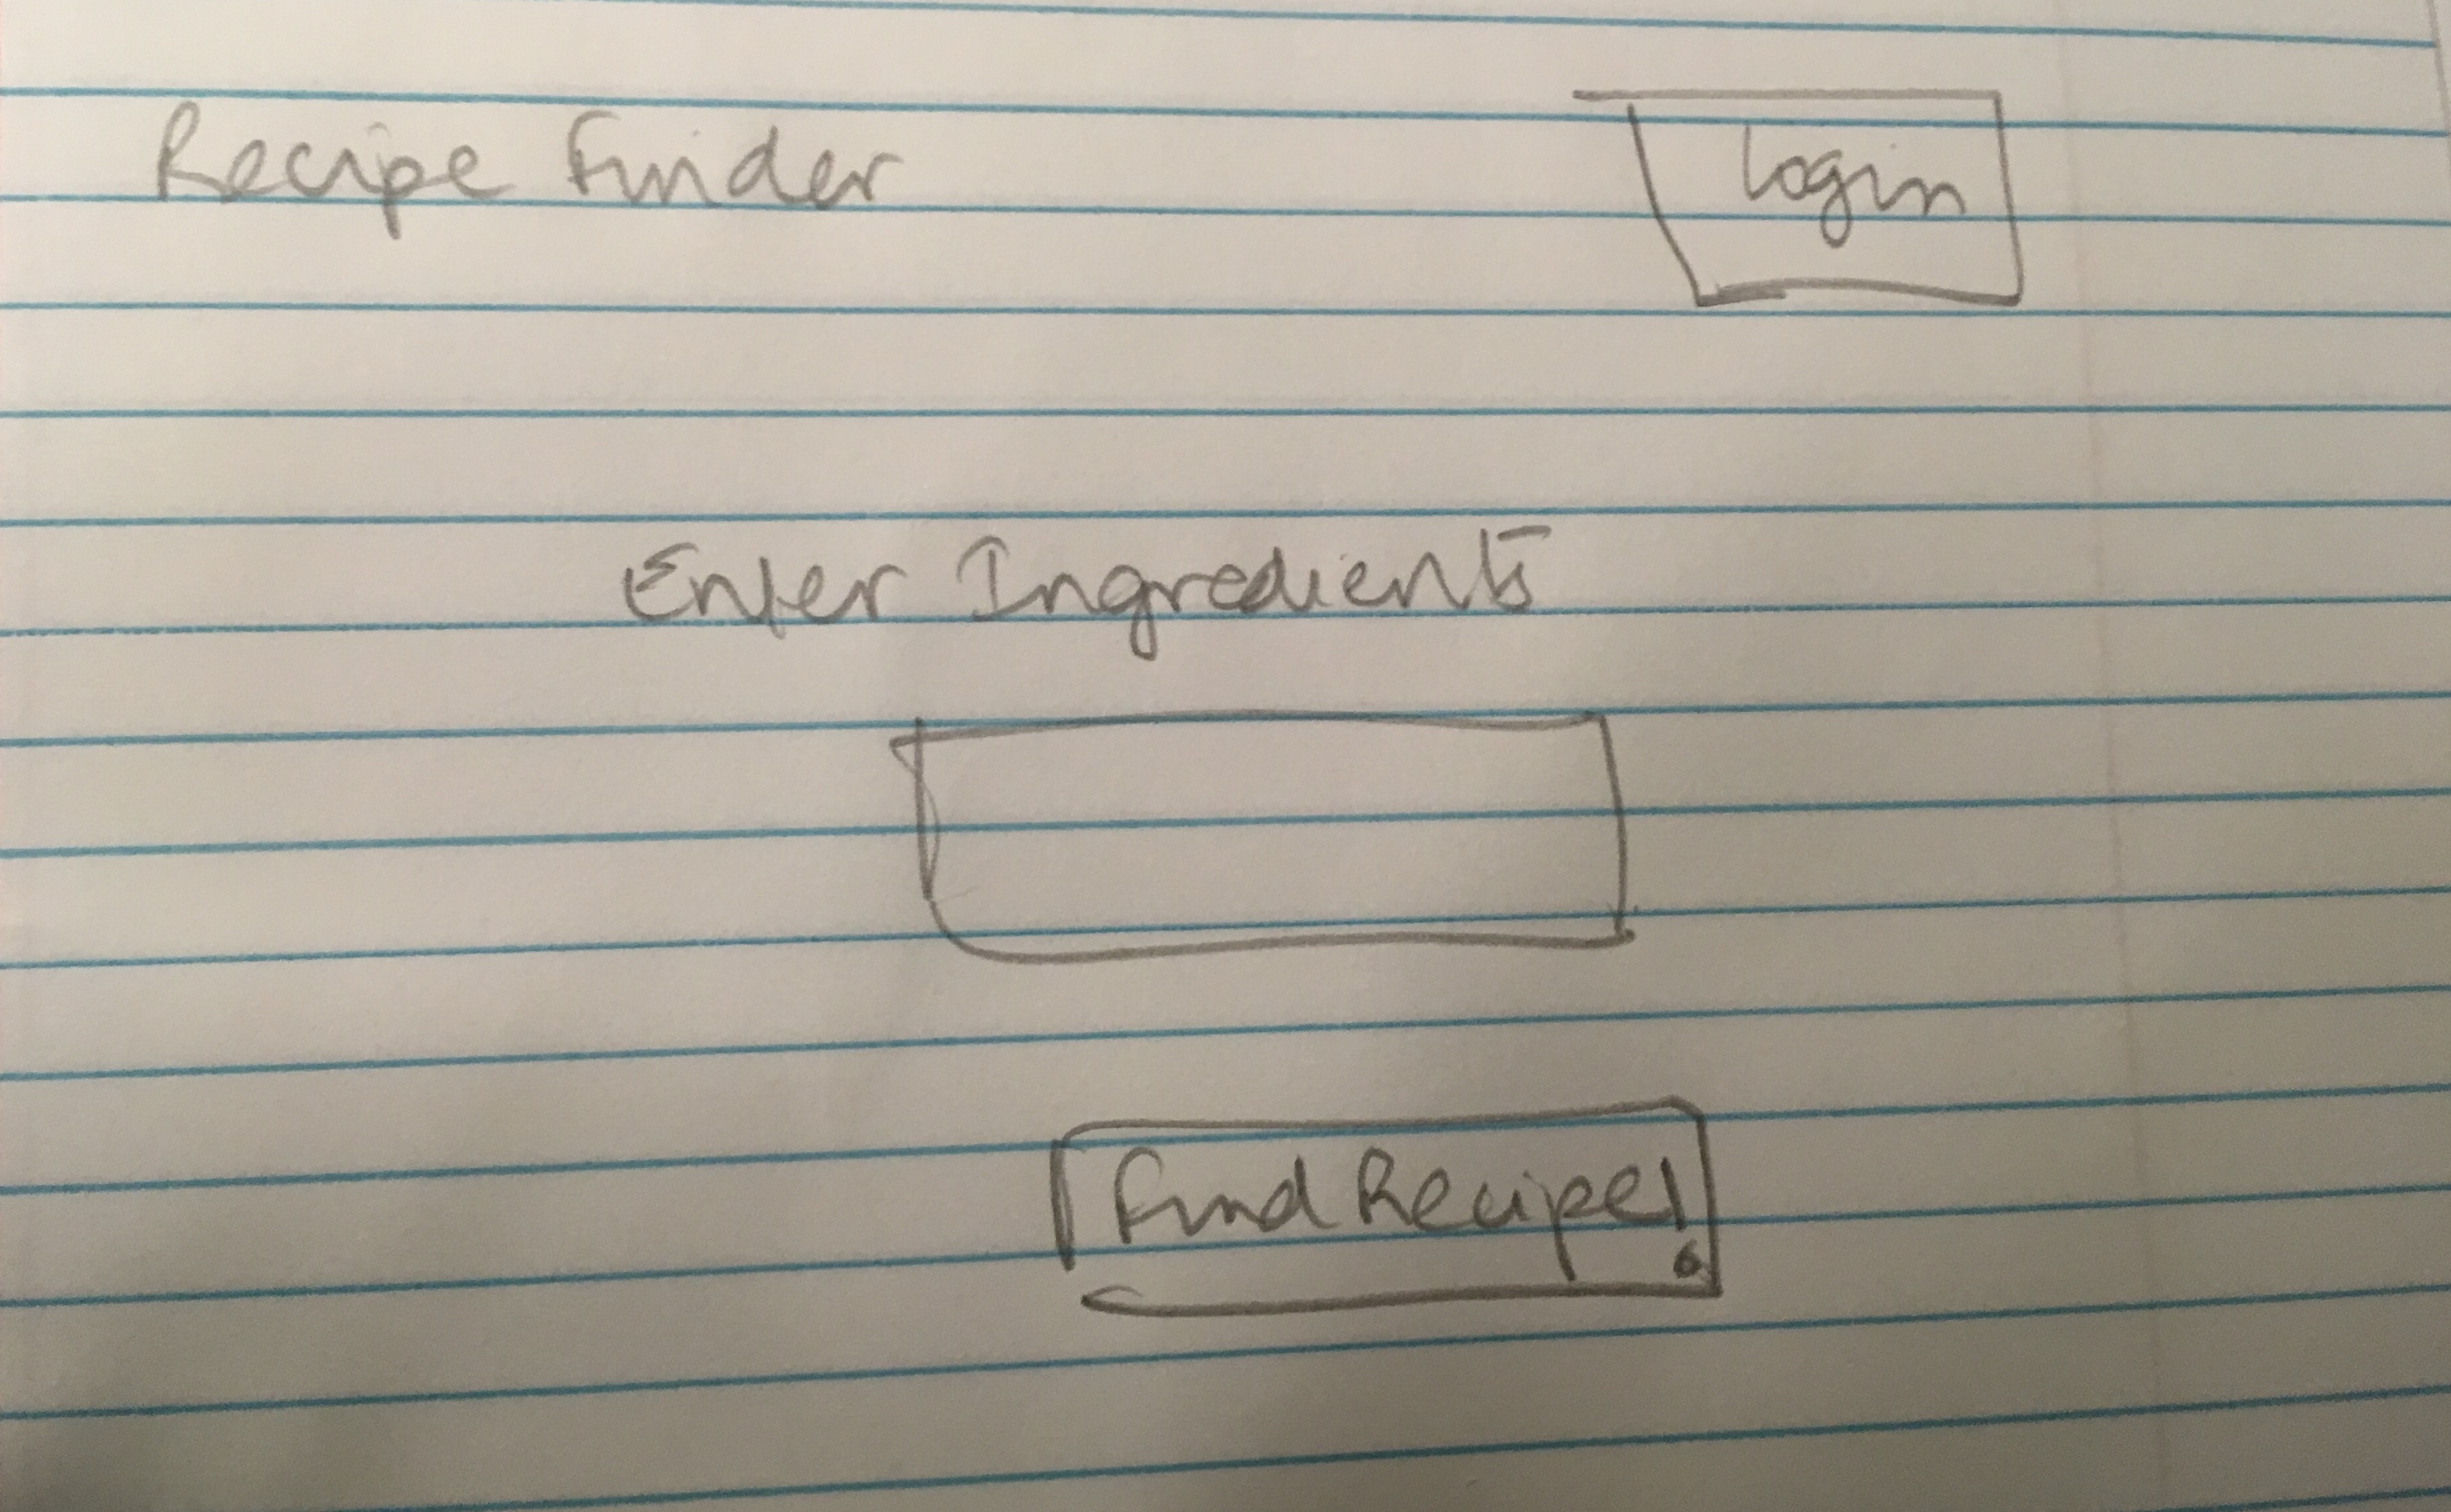 Recipe Finder
login
Enter Ingredients
Find Recipe!